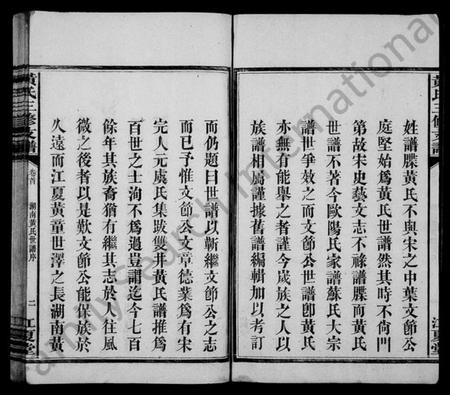 黃氏三修支譜
江夏堂
姓譜牒黃氏不與宋之中葉文節公
庭堅始為黃氏世譜然其時不尙門
第故宋史藝文志不祿譜牒而黃氏
世譜不著今歐陽氏家譜蘇氏大宗
譜世爭效之而文節公世譜卽黃氏
亦無有能舉之者謹今歲族之人以
族譜相屬謹據舊譜編輯加以考訂
而仍題曰世譜以靳繼文節公之志
而已予惟文節公文章德業為有宋
完人元虞氏集跋雙井黃氏譜推為
百世之士洵不為過豈謂迄今七百
餘年其族裔猶有繼其志於人往風
微之後者以是歎文節公能保族於
久遠而江夏黃童世澤之長湖南黃
黃氏三修支譜
卷首
湖南黃氏世譜序
二
江夏堂
Family Search International